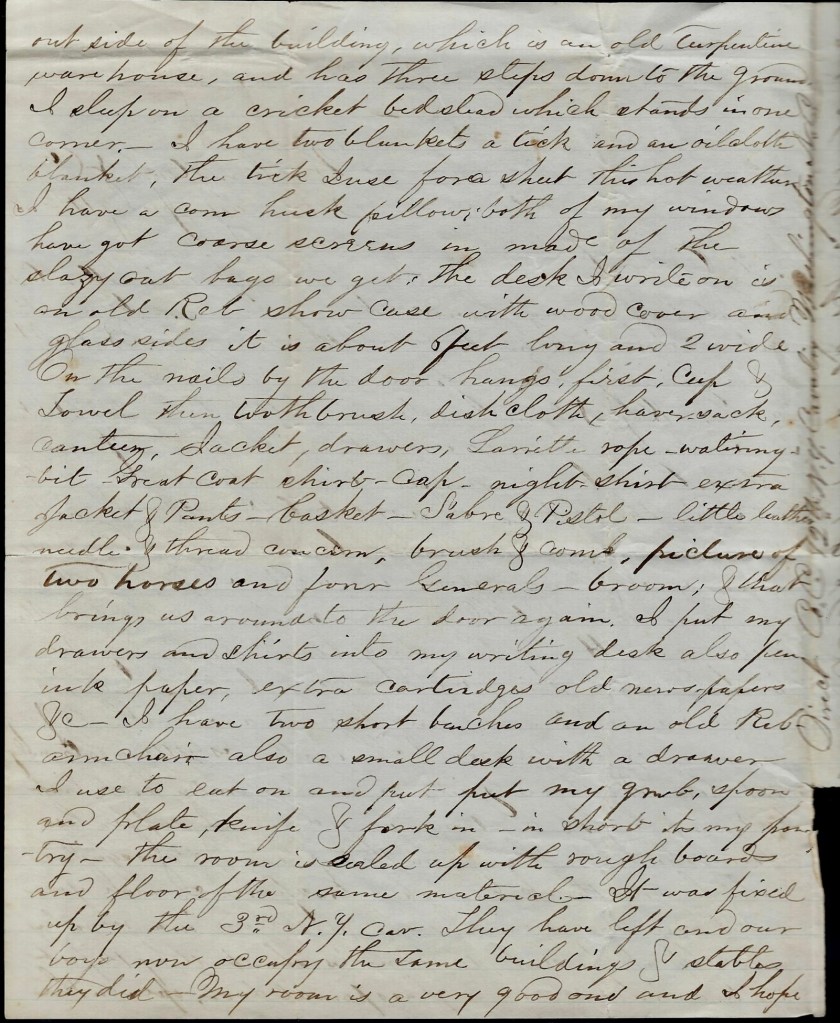 out side of the building, which is an old Turpentine
ware house, and has three steps down to the ground
I sleep on a cricket bedstead which stands in one
corner. — I have two blankets a tick and an oilcloth
blanket, the tick I use for a sheet this hot weather
I have a corn husk pillow; both of my windows
have got coarse screens in made of the
slazy oat bags we get; the desk I write on is
an old Reb show case with wood cover and
glass sides it is about feet long and 2 wide.
On the nails by the door hangs, first, Cup &
Towel then toothbrush, dish cloth, haver-sack,
canteen, Jacket, drawers, Larriette rope - watering-
bit - Great coat shirt - Cap - night-shirt extra
Jacket & Pants - basket - Sabre & Pistol - little leather
needle & thread concern, brush & comb, picture of
two horses and four Generals - broom; & that
brings us around to the door again. I put my
drawers and shirts into my writing desk also pen
ink paper, extra cartridges old news-papers
&c — I have two short benches and an old Reb
armchair also a small desk with a drawer
I use to eat on and put put my grub, spoon
and plate, knife & fork in - in short its my pan-
-try - the room is ceiled up with rough boards
and floor of the same material - It was fixed
up by the 3rd N.Y. Cav. They have left and our
boys now occupy the same buildings & stables
they did — My room is a very good one and I hope
N.Y. Cavalry Washington N.C.